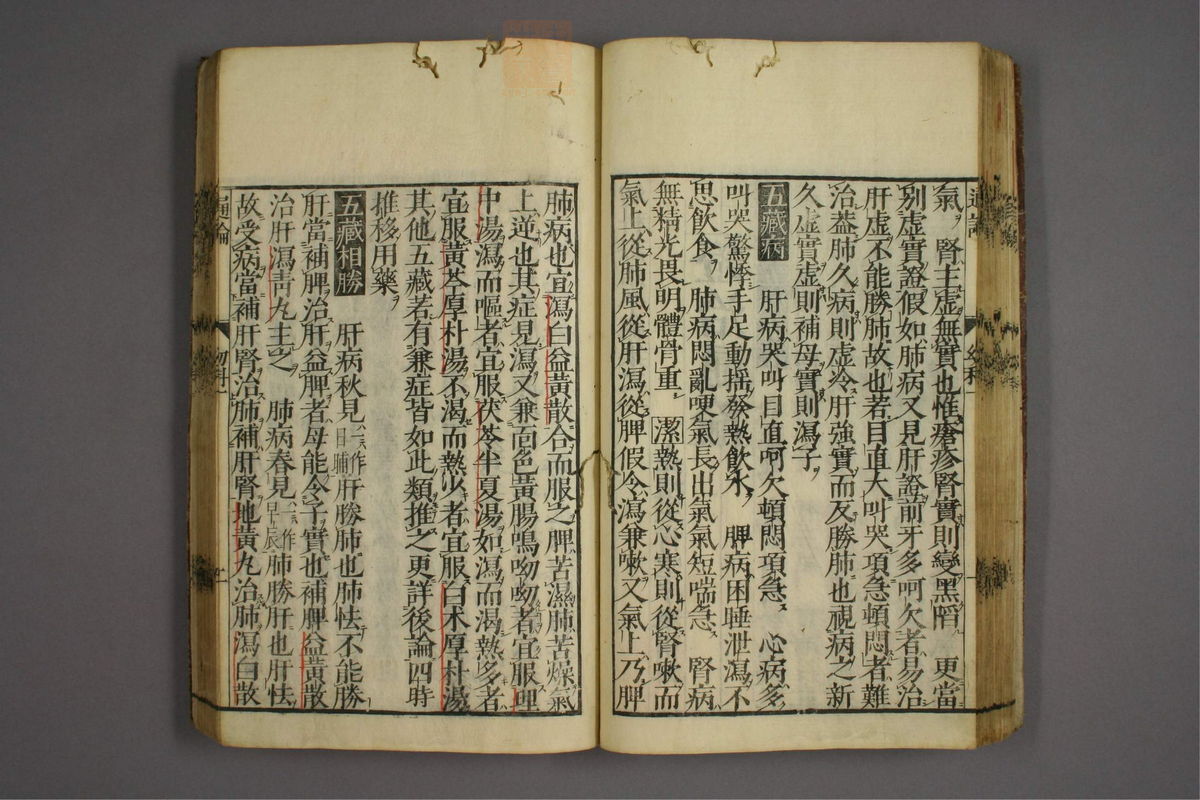 氣 腎主虛無實也惟瘡疹腎實則變黑陷 更當
別虛實證假如肺病又見肝證前牙多呵欠者易治
肝虛不能勝肺故也若目直大叫哭項急頓悶者難
治葢肺久病則虛冷肝強實而反勝肺也視病之新
久虛實虛則補母實則瀉子
五藏病 肝病哭叫目直呵欠頓悶項急 心病多
叫哭驚悸手足動搖發熱飲水 脾病困睡泄瀉不
思飲食 肺病悶亂哽氣長出氣氣短喘急 腎病
無精光畏明體骨重 潔熱則從心寒則從腎嗽而
氣上從肺風從肝瀉從脾假令瀉兼嗽又氣上乃脾
肺病也宜瀉白益黃散合而服之脾苦濕肺苦燥氣
上逆也其症見瀉又兼面色黃腸鳴呦呦者宜服理
中湯瀉而嘔者宜服茯苓半夏湯如瀉而渴熱多者
宜服黃芩厚朴湯不渴而熱少者宜服白朮厚朴湯
其他五藏若有兼症皆如此類推之更詳後論四時
推移用藥
五藏相勝 肝病秋見一作日晡肝勝肺也肺怯不能勝
肝當補脾治肝益脾者母能令子實也補脾益黃散
治肝瀉青丸主之 肺病春見一作早辰肺勝肝也肝怯
故受病當補肝腎治肺補肝腎地黃丸治肺瀉白散
通論
幼科一